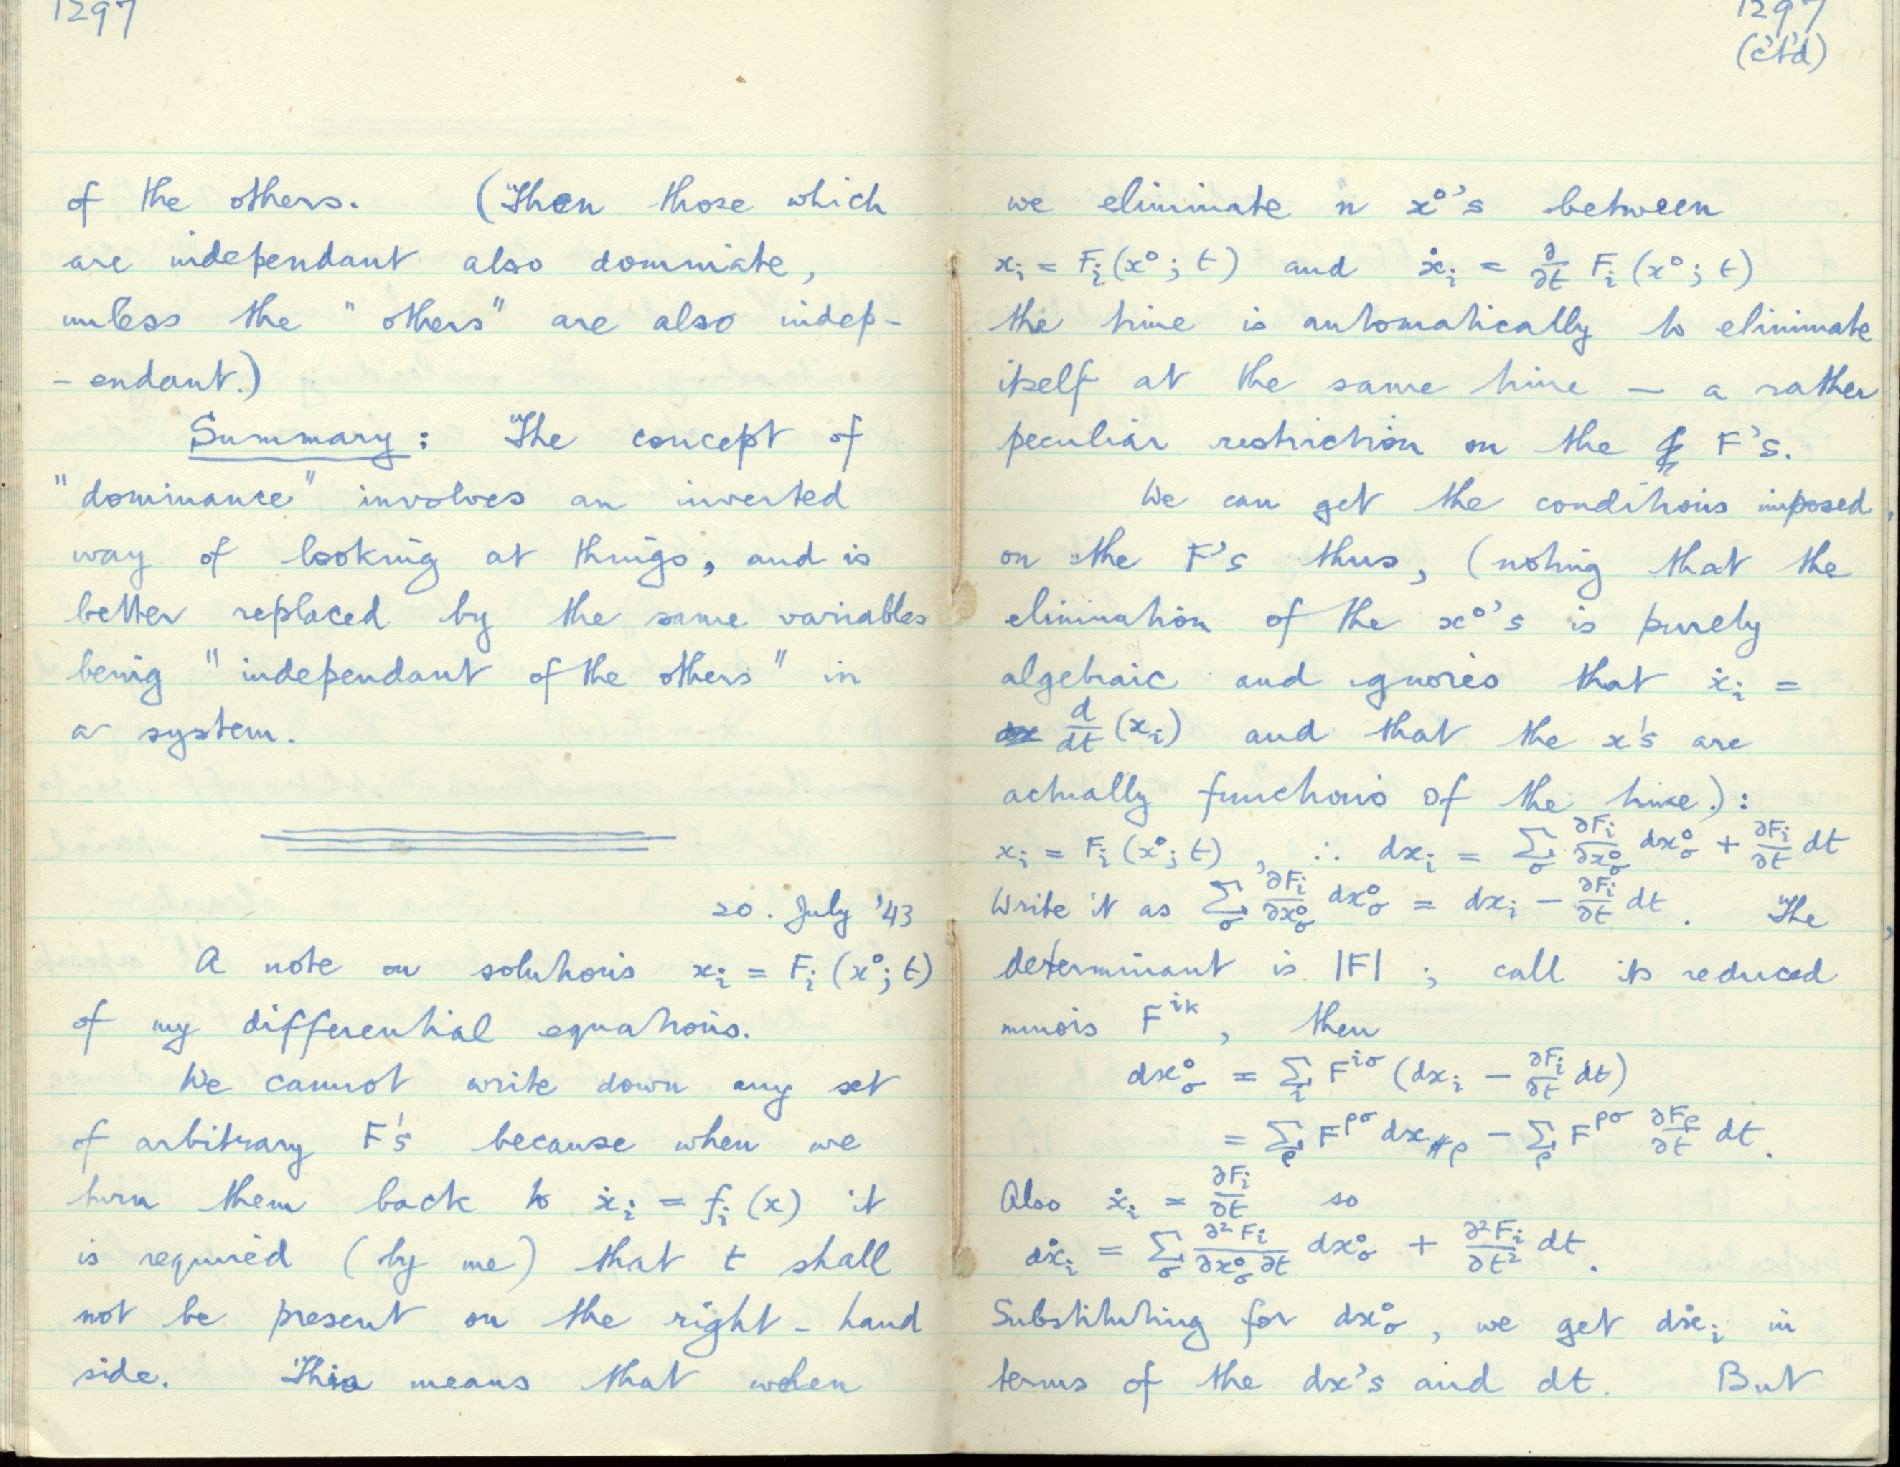 1297
of the others. (Then those which
are independant also dominate,
unless the "others" are also indep-
-endant.)
Summary: The concept of
"dominance" involves an inverted
way of looking at things, and is
better replaced by the same variables
being "independant of the others" in
a system.
20. July '43
A note on solutions xᵢ = Fᵢ(x°; t)
of my differential equations.
We cannot write down any set
of arbitrary F's because when we
turn them back to ẋᵢ = fᵢ(x) it
is required (by me) that t shall
not be present on the right-hand
side. This means that when
1297
(c't'd)
we eliminate n x°'s between
xᵢ = Fᵢ(x°; t) and ẋᵢ = ∂/∂t Fᵢ(x°; t)
the time is automatically to eliminate
itself at the same time — a rather
peculiar restriction on the F's.
We can get the conditions imposed,
on the F's thus, (noting that the
elimination of the x°'s is purely
algebraic and ignores that ẋᵢ =
d/dt (xᵢ) and that the x's are
actually functions of the time.):
xᵢ = Fᵢ(x°; t), ∴ dxᵢ = Σ_σ ∂Fᵢ/∂x°_σ dx°_σ + ∂Fᵢ/∂t dt
Write it as Σ_σ ∂Fᵢ/∂x°_σ dx°_σ = dxᵢ − ∂Fᵢ/∂t dt. The
determinant is |F|; call its reduced
minors F^{ik}, then
dx°_σ = Σ_i F^{iσ} (dxᵢ − ∂Fᵢ/∂t dt)
= Σ_ρ F^{ρσ} dx_ρ − Σ_ρ F^{ρσ} ∂F_ρ/∂t dt.
Also ẋᵢ = ∂Fᵢ/∂t so
dẋᵢ = Σ_σ ∂²Fᵢ/∂x°_σ∂t dx°_σ + ∂²Fᵢ/∂t² dt.
Substituting for dx°_σ, we get dẋᵢ in
terms of the dx's and dt. But